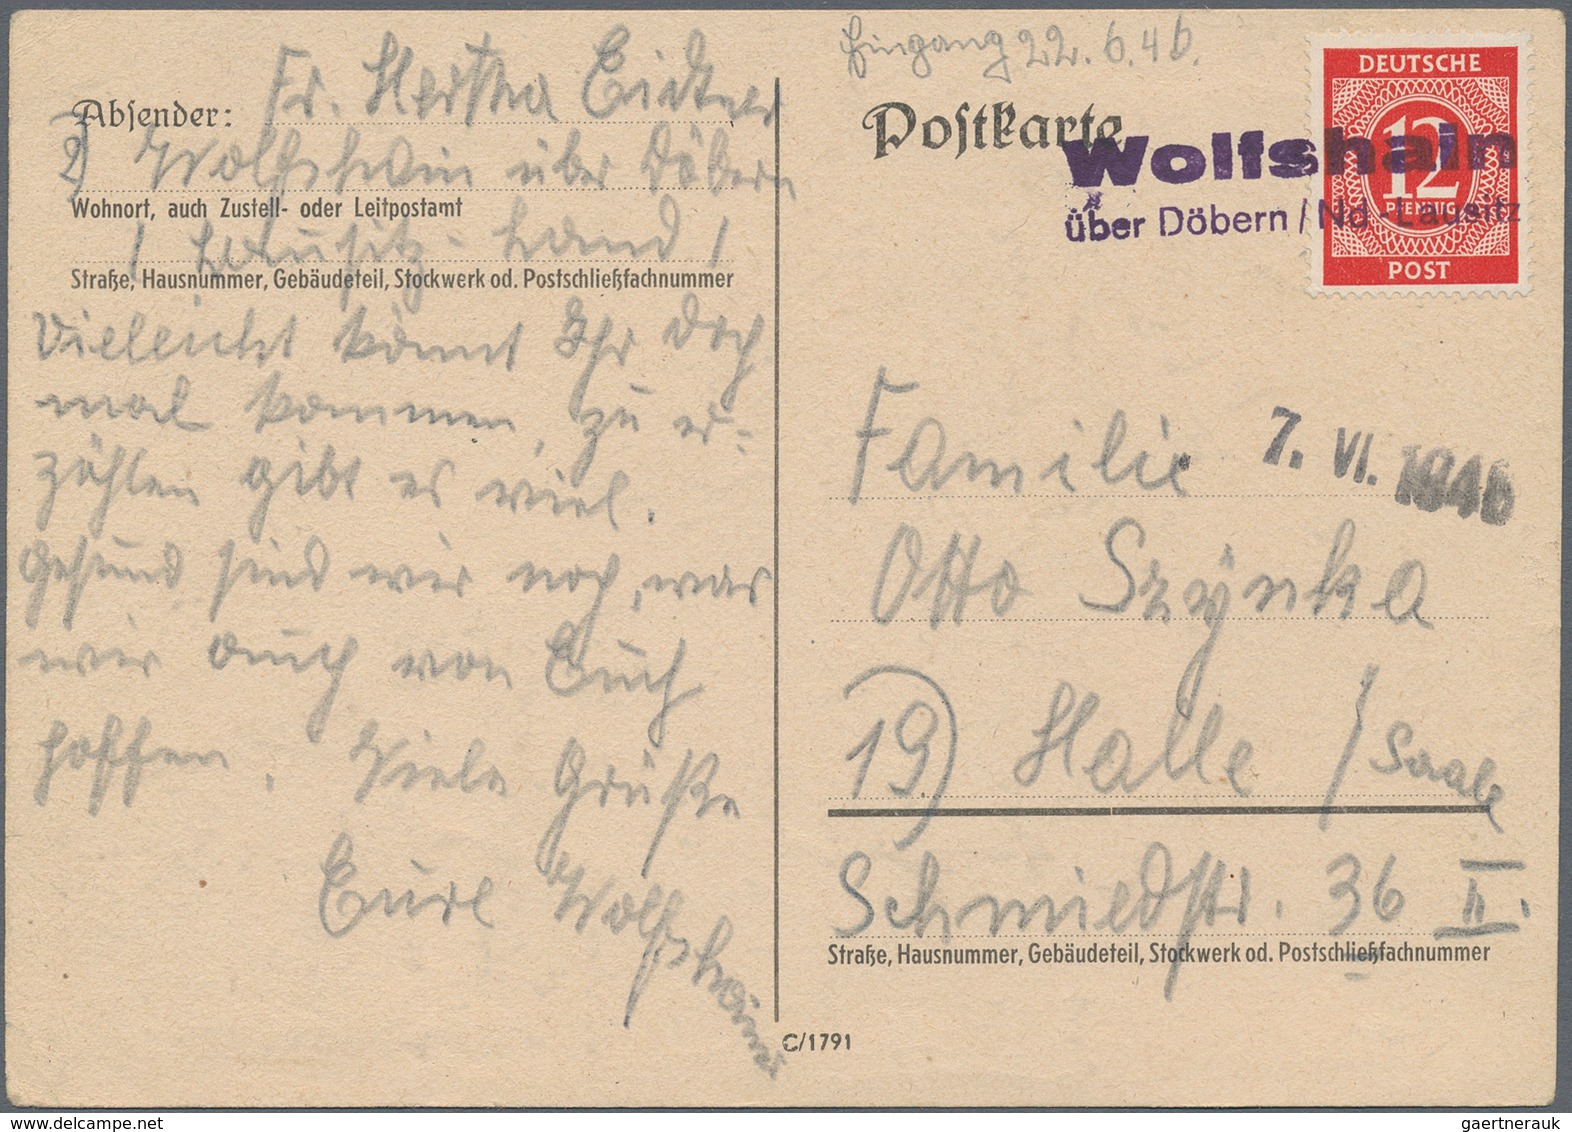 Absender: Fr. Hertha Eichner
2) Wolfshain über Döbern
Wohnort, auch Zustell- oder Leitpostamt
/ Lausitz-Land /
Straße, Hausnummer, Gebäudeteil, Stockwerk od. Postschließfachnummer
Vieleicht könnt Ihr doch
mal kommen, zu er-
zählen gibt es viel.
Gesund sind wir noch, was
wir auch von Euch
hoffen. Viele Grüße
Eure Wolfshainer
Eingang 22.6.46.
Postkarte
DEUTSCHE
12
PFENNIG
POST
Wolfshain
über Döbern / Nd.-Lausitz
7. VI. 1946
Familie
Otto Szynka
19) Halle / Saale
Schmiedstr. 36 II.
Straße, Hausnummer, Gebäudeteil, Stockwerk od. Postschließfachnummer
C/1791
gaertnerauk